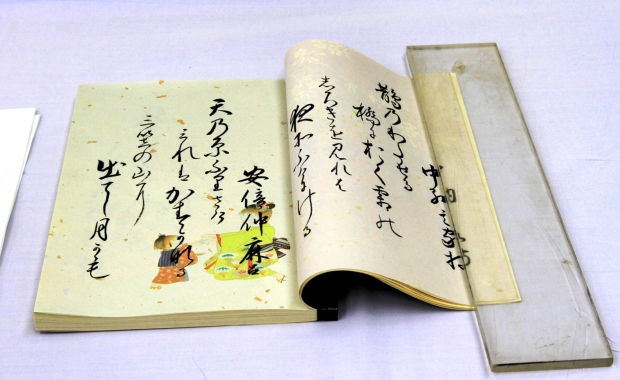 中納言家持
鵲乃わたせる
橋におく霜の
しろきを見れは
夜そふけにける
安倍仲麿
天乃原ふりさけ
みれはかすかなる
三笠の山に
出てし月かも